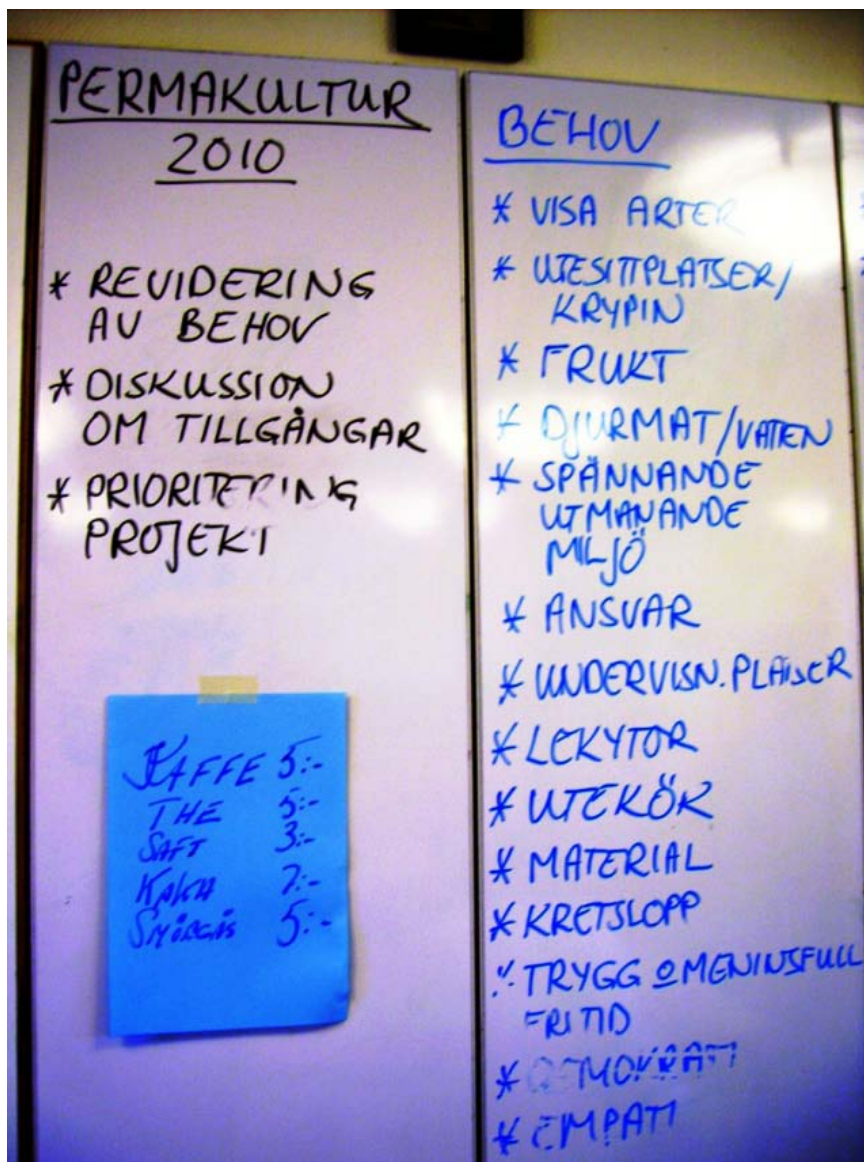 PERMAKULTUR
2010
* REVIDERING
AV BEHOV
* DISKUSSION
OM TILLGÅNGAR
* PRIORITERING
PROJEKT
KAFFE 5:-
THE 5:-
SAFT 3:-
KAKA
SMÖRGÅS 5:-
BEHOV
* VISA ARTER
* UTESITTPLATSER/
KRYPIN
* FRUKT
* DJURMAT/VATTEN
* SPÄNNANDE
UTMANANDE
MILJÖ
* ANSVAR
* UNDERVISN. PLATSER
* LEKYTOR
* UTEKÖK
* MATERIAL
* KRETSLOPP
* TRYGG O MENINSFULL
FRITID
* DEMOKRATI
* EMPATI